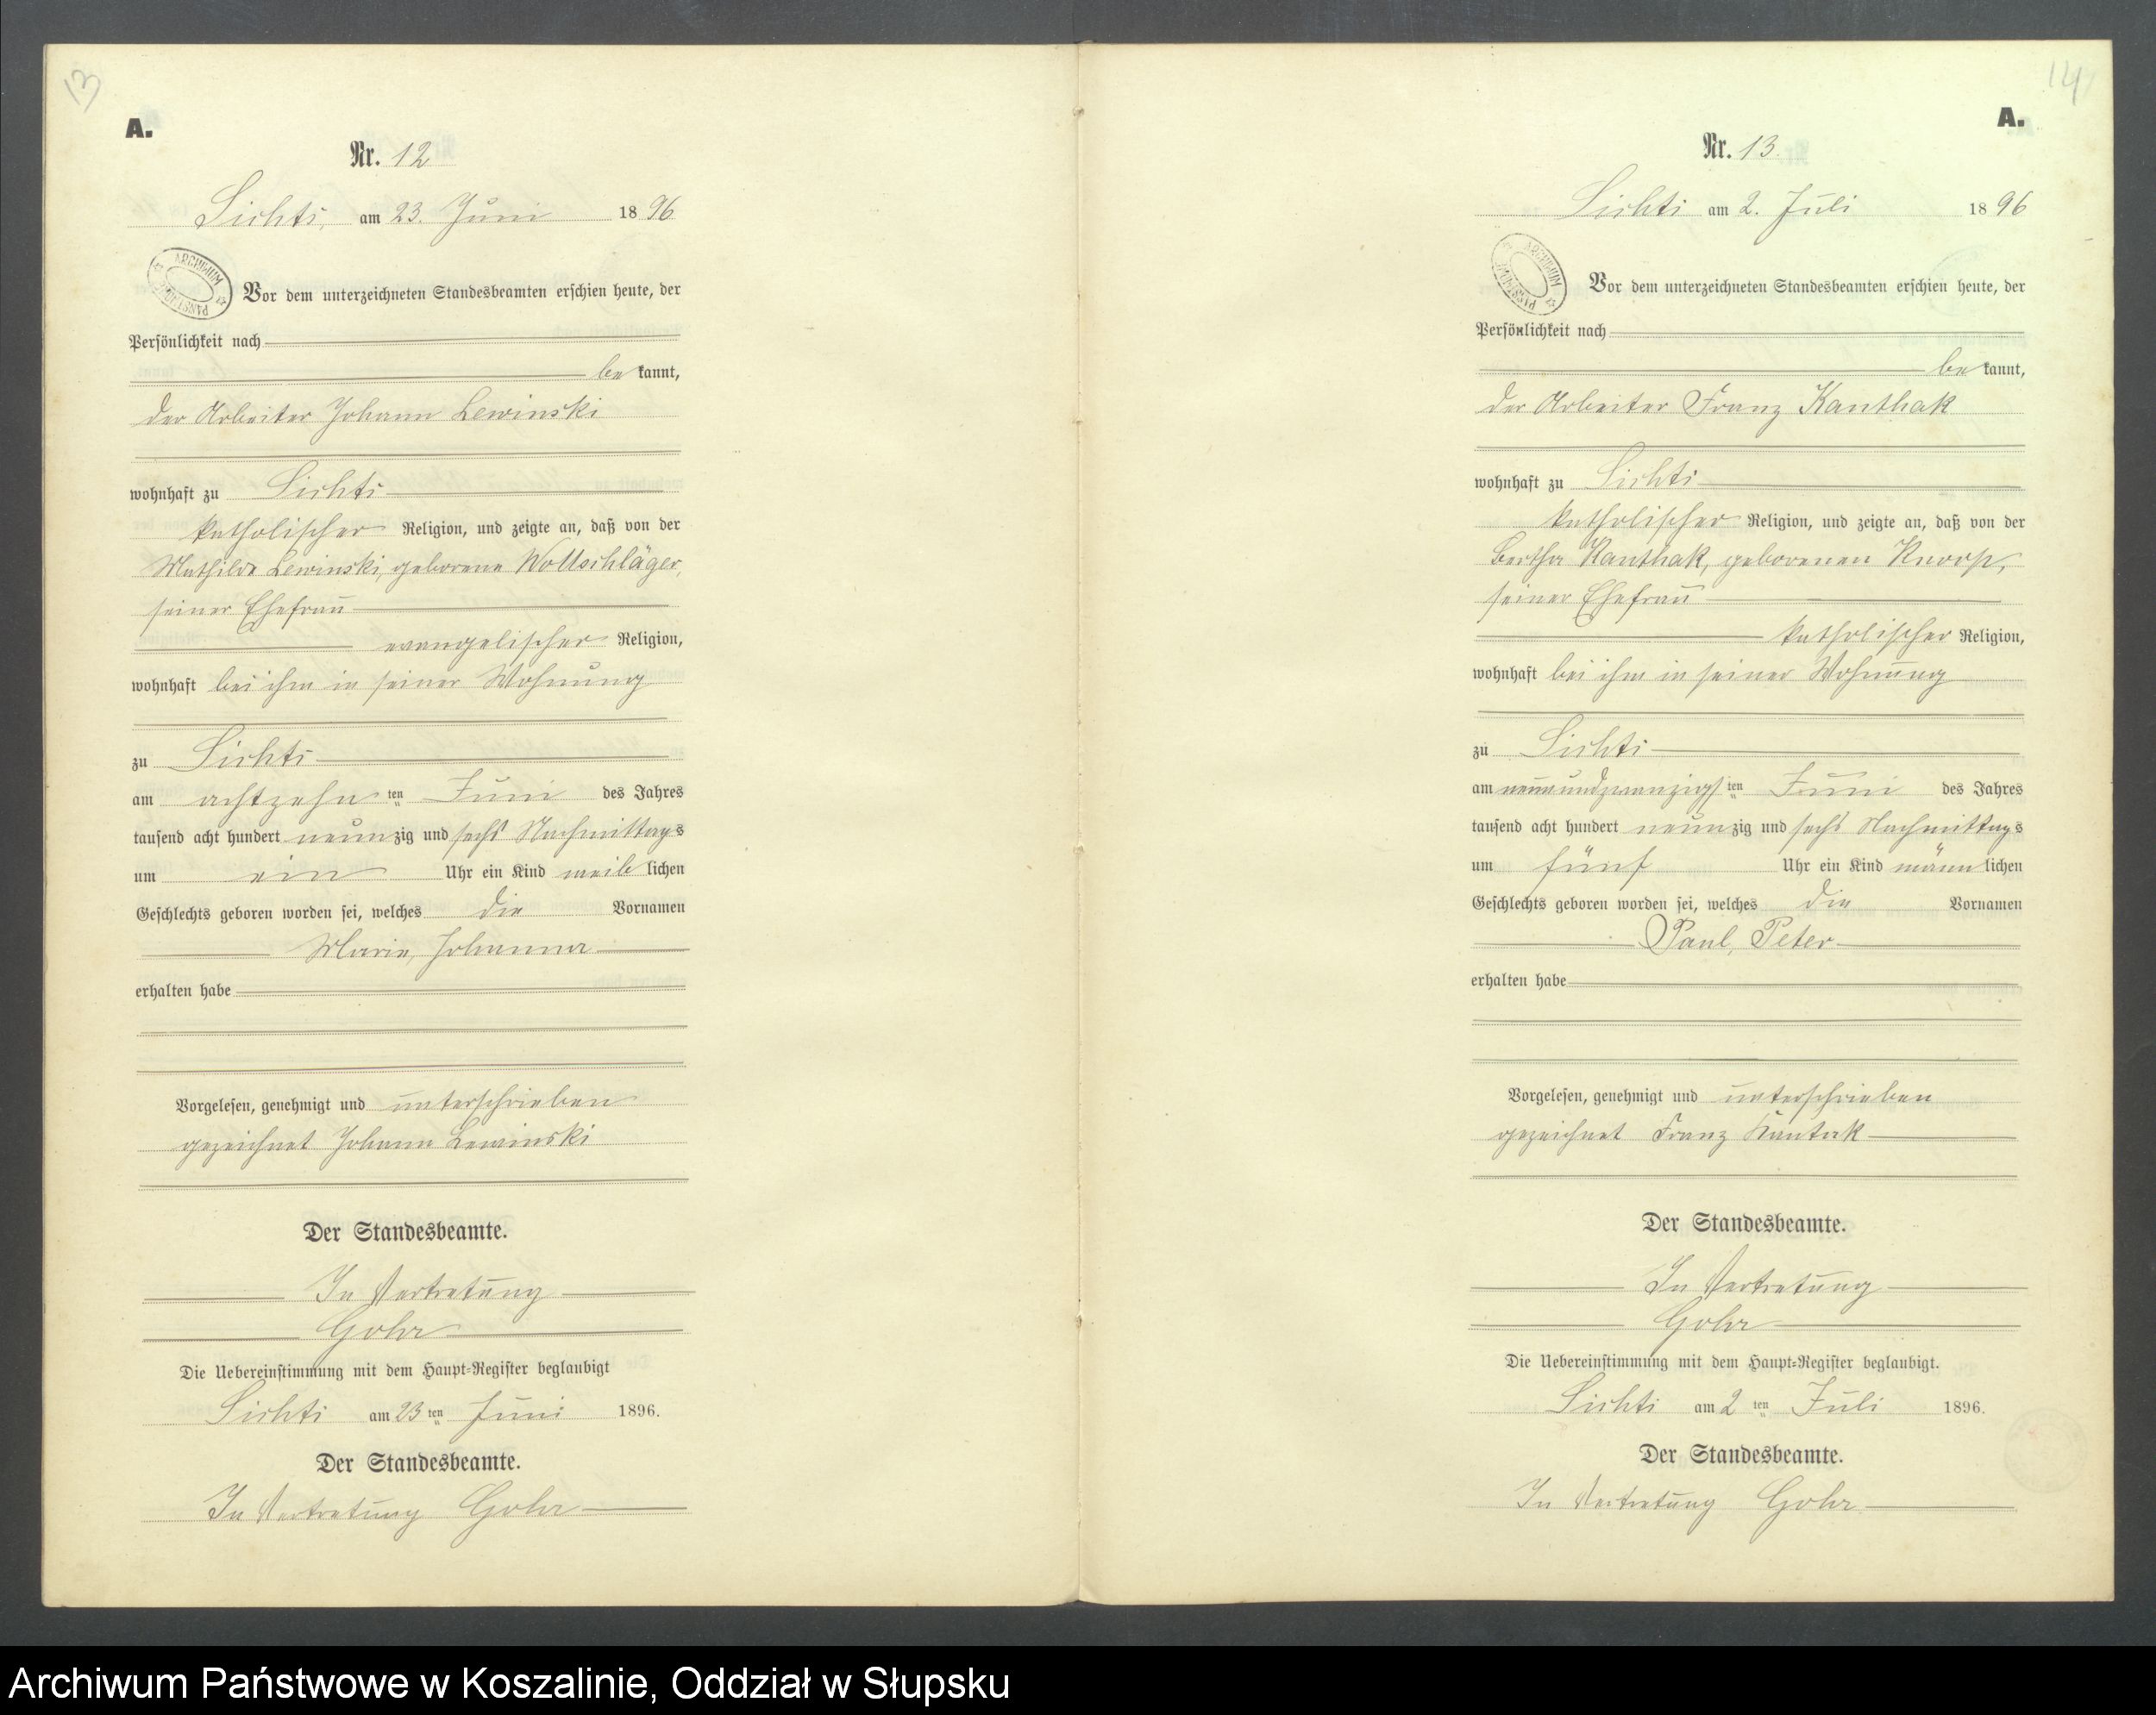 13
A.
Nr. 12
Lichti, am 23. Juni 1896
ARCHIWUM PAŃSTWOWE
Vor dem unterzeichneten Standesbeamten erschien heute, der
Persönlichkeit nach
bekannt,
der Arbeiter Johann Lewinski
wohnhaft zu Lichti
katholischer Religion, und zeigte an, daß von der
Mathilde Lewinski, geborene Wollschläger,
seiner Ehefrau
evangelischer Religion,
wohnhaft bei ihm in seiner Wohnung
zu Lichti
am achtzehn ten Juni des Jahres
tausend acht hundert neunzig und sechs Nachmittags
um ein Uhr ein Kind weiblichen
Geschlechts geboren worden sei, welches die Vornamen
Marie, Johanna
erhalten habe
Vorgelesen, genehmigt und unterschrieben
gezeichnet Johann Lewinski
Der Standesbeamte.
In Vertretung
Gohr
Die Uebereinstimmung mit dem Haupt-Register beglaubigt
Lichti am 23 ten Juni 1896.
Der Standesbeamte.
In Vertretung Gohr
14
A.
Nr. 13.
Lichti am 2. Juli 1896
ARCHIWUM PAŃSTWOWE
Vor dem unterzeichneten Standesbeamten erschien heute, der
Persönlichkeit nach
bekannt,
der Arbeiter Franz Kanthak
wohnhaft zu Lichti
katholischer Religion, und zeigte an, daß von der
Bertha Kanthak, geborenen Knoop,
seiner Ehefrau
katholischer Religion,
wohnhaft bei ihm in seiner Wohnung
zu Lichti
am neunundzwanzigs ten Juni des Jahres
tausend acht hundert neunzig und sechs Nachmittags
um fünf Uhr ein Kind männlichen
Geschlechts geboren worden sei, welches die Vornamen
Paul, Peter
erhalten habe
Vorgelesen, genehmigt und unterschrieben
gezeichnet Franz Kantak
Der Standesbeamte.
In Vertretung
Gohr
Die Uebereinstimmung mit dem Haupt-Register beglaubigt.
Lichti am 2 ten Juli 1896.
Der Standesbeamte.
In Vertretung Gohr
Archiwum Państwowe w Koszalinie, Oddział w Słupsku